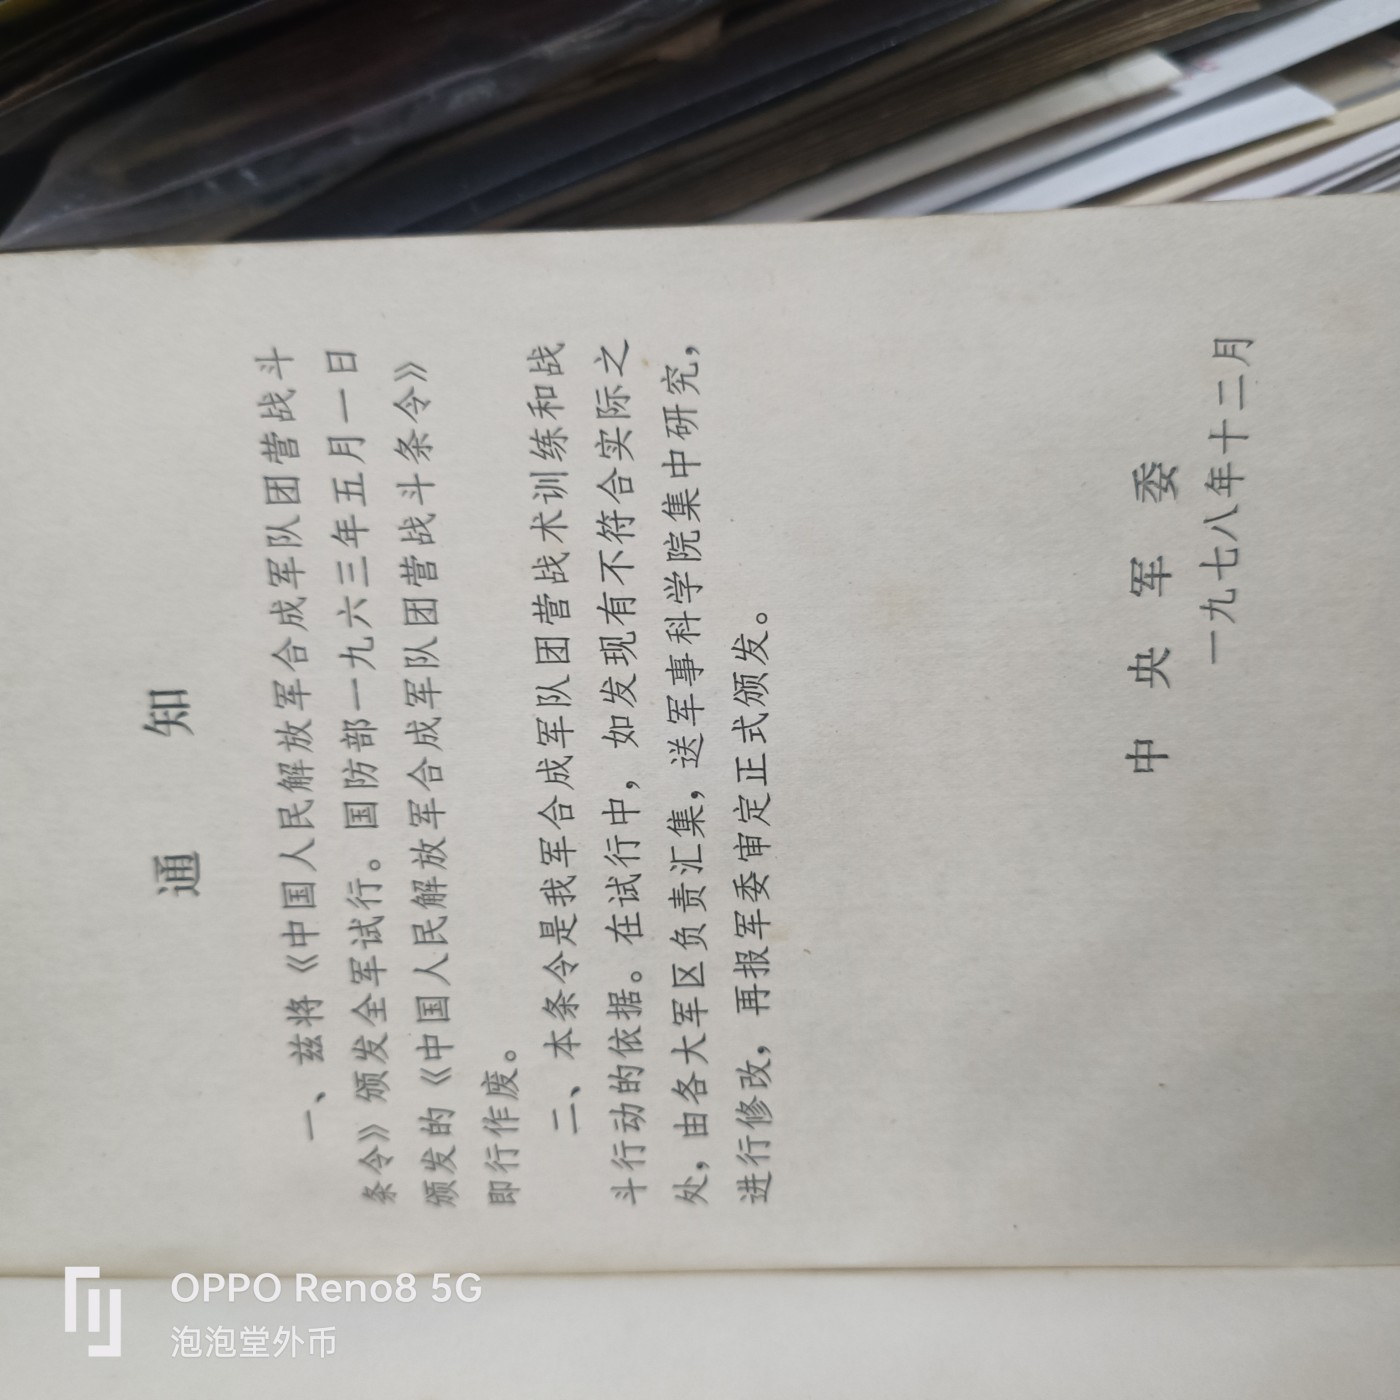 通知
一、兹将《中国人民解放军合成军队团营战斗
条令》颁发全军试行。国防部一九六三年五月一日
颁发的《中国人民解放军合成军队团营战斗条令》
即行作废。
二、本条令是我军合成军队团营战术训练和战
斗行动的依据。在试行中，如发现有不符合实际之
处，由各大军区负责汇集，送军事科学院集中研究，
进行修改，再报军委审定正式颁发。
中央军委
一九七八年十二月
OPPO Reno8 5G
泡泡堂外币